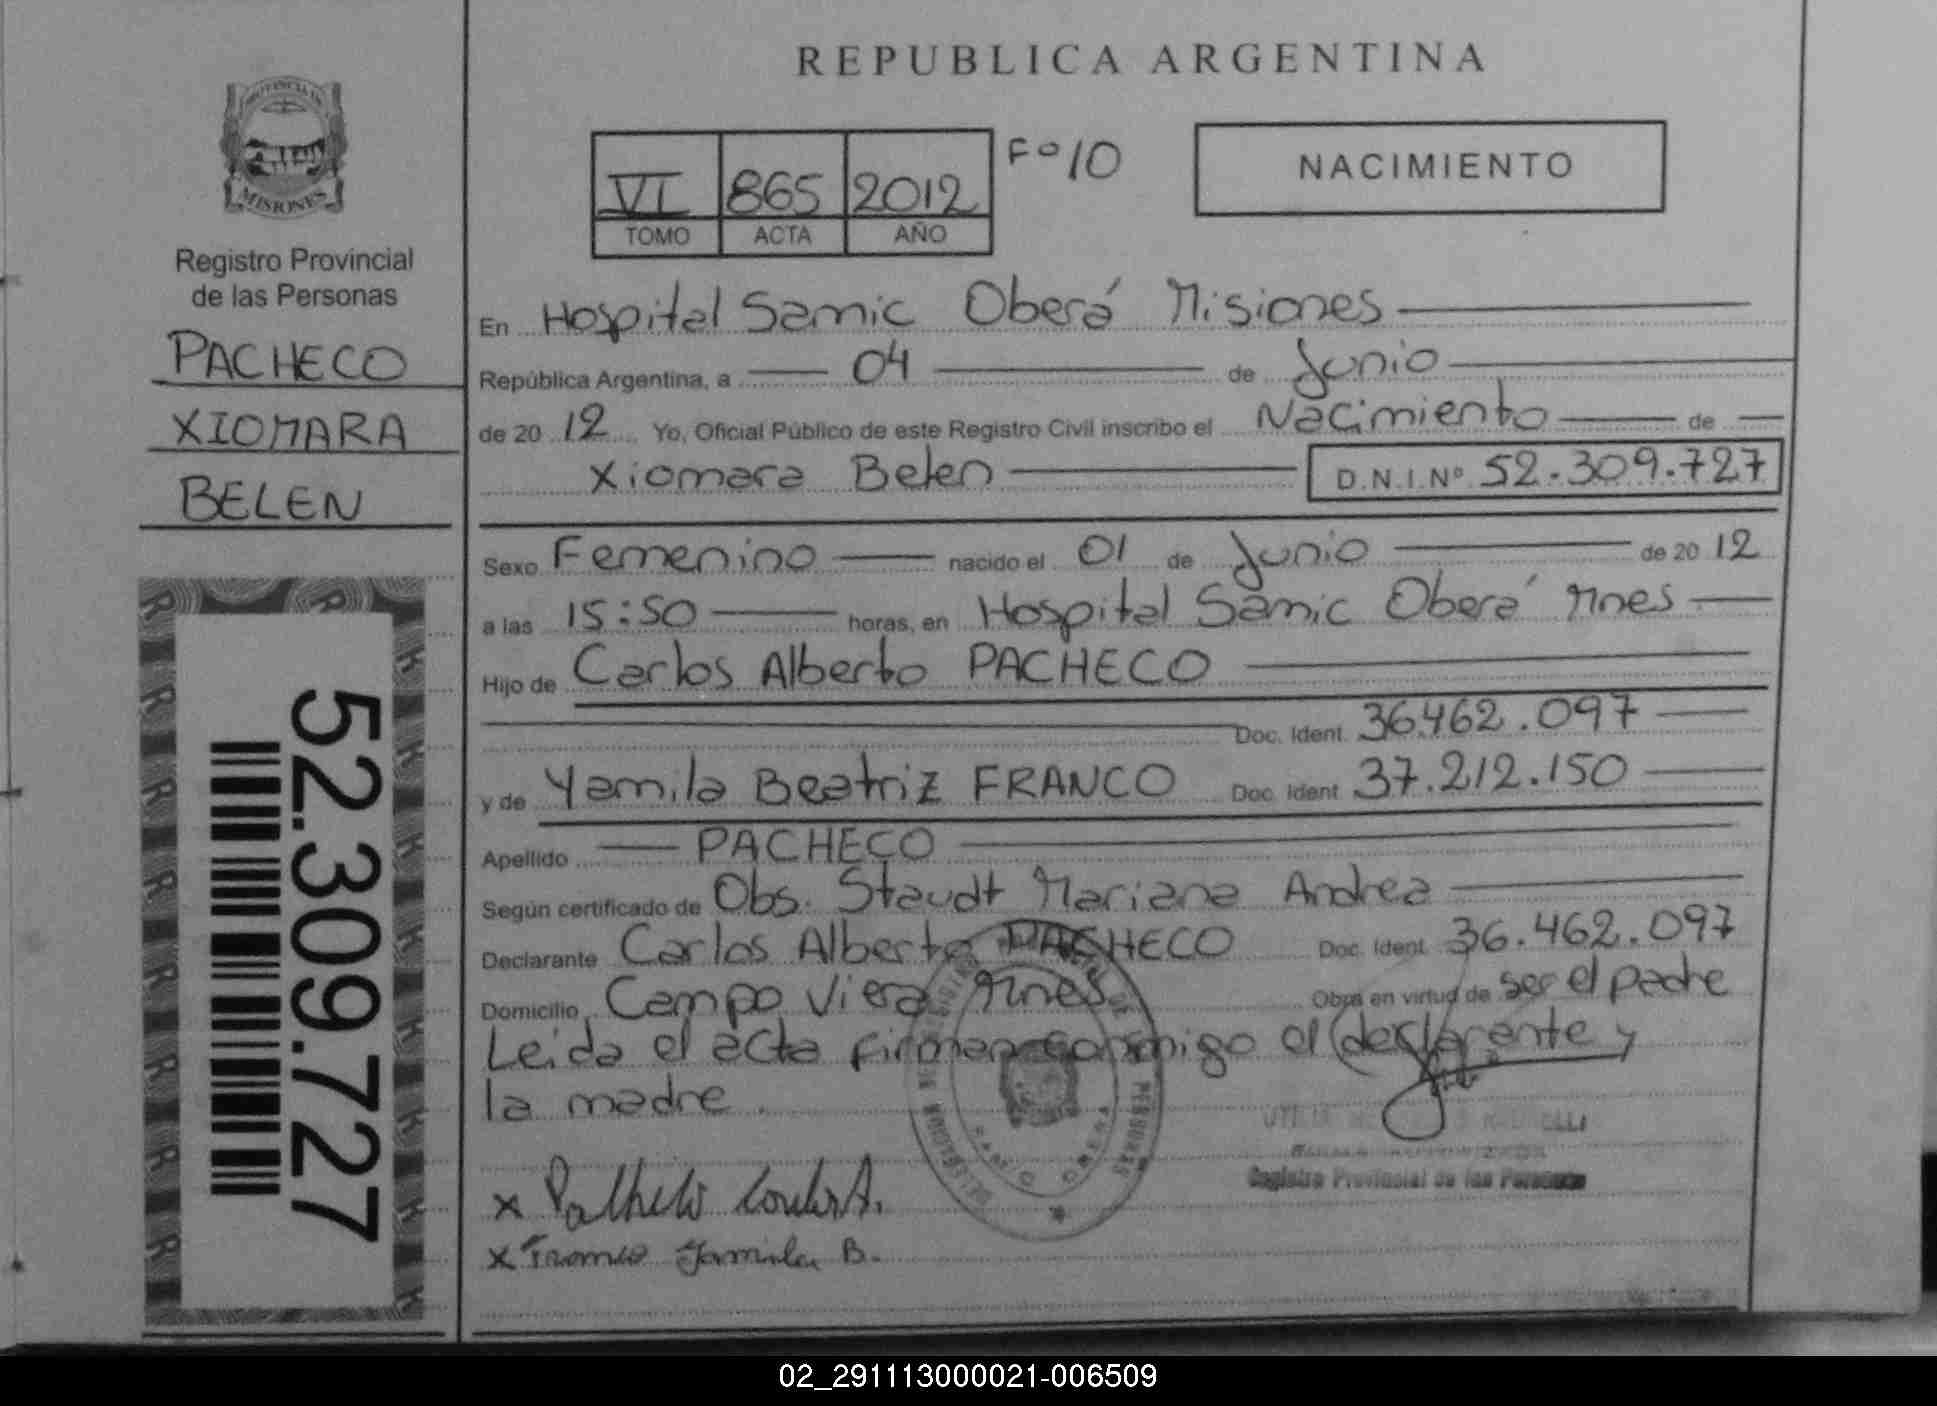 REPUBLICA ARGENTINA
PROVINCIA DE
MISIONES
Registro Provincial
de las Personas
PACHECO
XIOMARA
BELEN
52.309.727
VI 865 2012 Fº 10
TOMO ACTA AÑO
NACIMIENTO
En Hospital Samic Oberá Misiones
República Argentina, a 04 de Junio
de 2012 Yo, Oficial Público de este Registro Civil inscribo el Nacimiento de
Xiomara Belen D.N.I.Nº 52.309.727
Sexo Femenino nacido el 01 de Junio de 2012
a las 15:50 horas, en Hospital Samic Oberá Mnes
Hijo de Carlos Alberto PACHECO
Doc. Ident. 36.462.097
y de Yamila Beatriz FRANCO Doc. Ident. 37.212.150
Apellido PACHECO
Según certificado de Obs. Staudt Mariana Andrea
Declarante Carlos Alberto PACHECO Doc. Ident. 36.462.097
Domicilio Campo Viera Mnes Obra en virtud de ser el padre
Leida el acta firman conmigo el declarante y
la madre.
Registro Provincial de las Personas
x Pacheco Carlos A.
x Franco Yamila B.
02_291113000021-006509